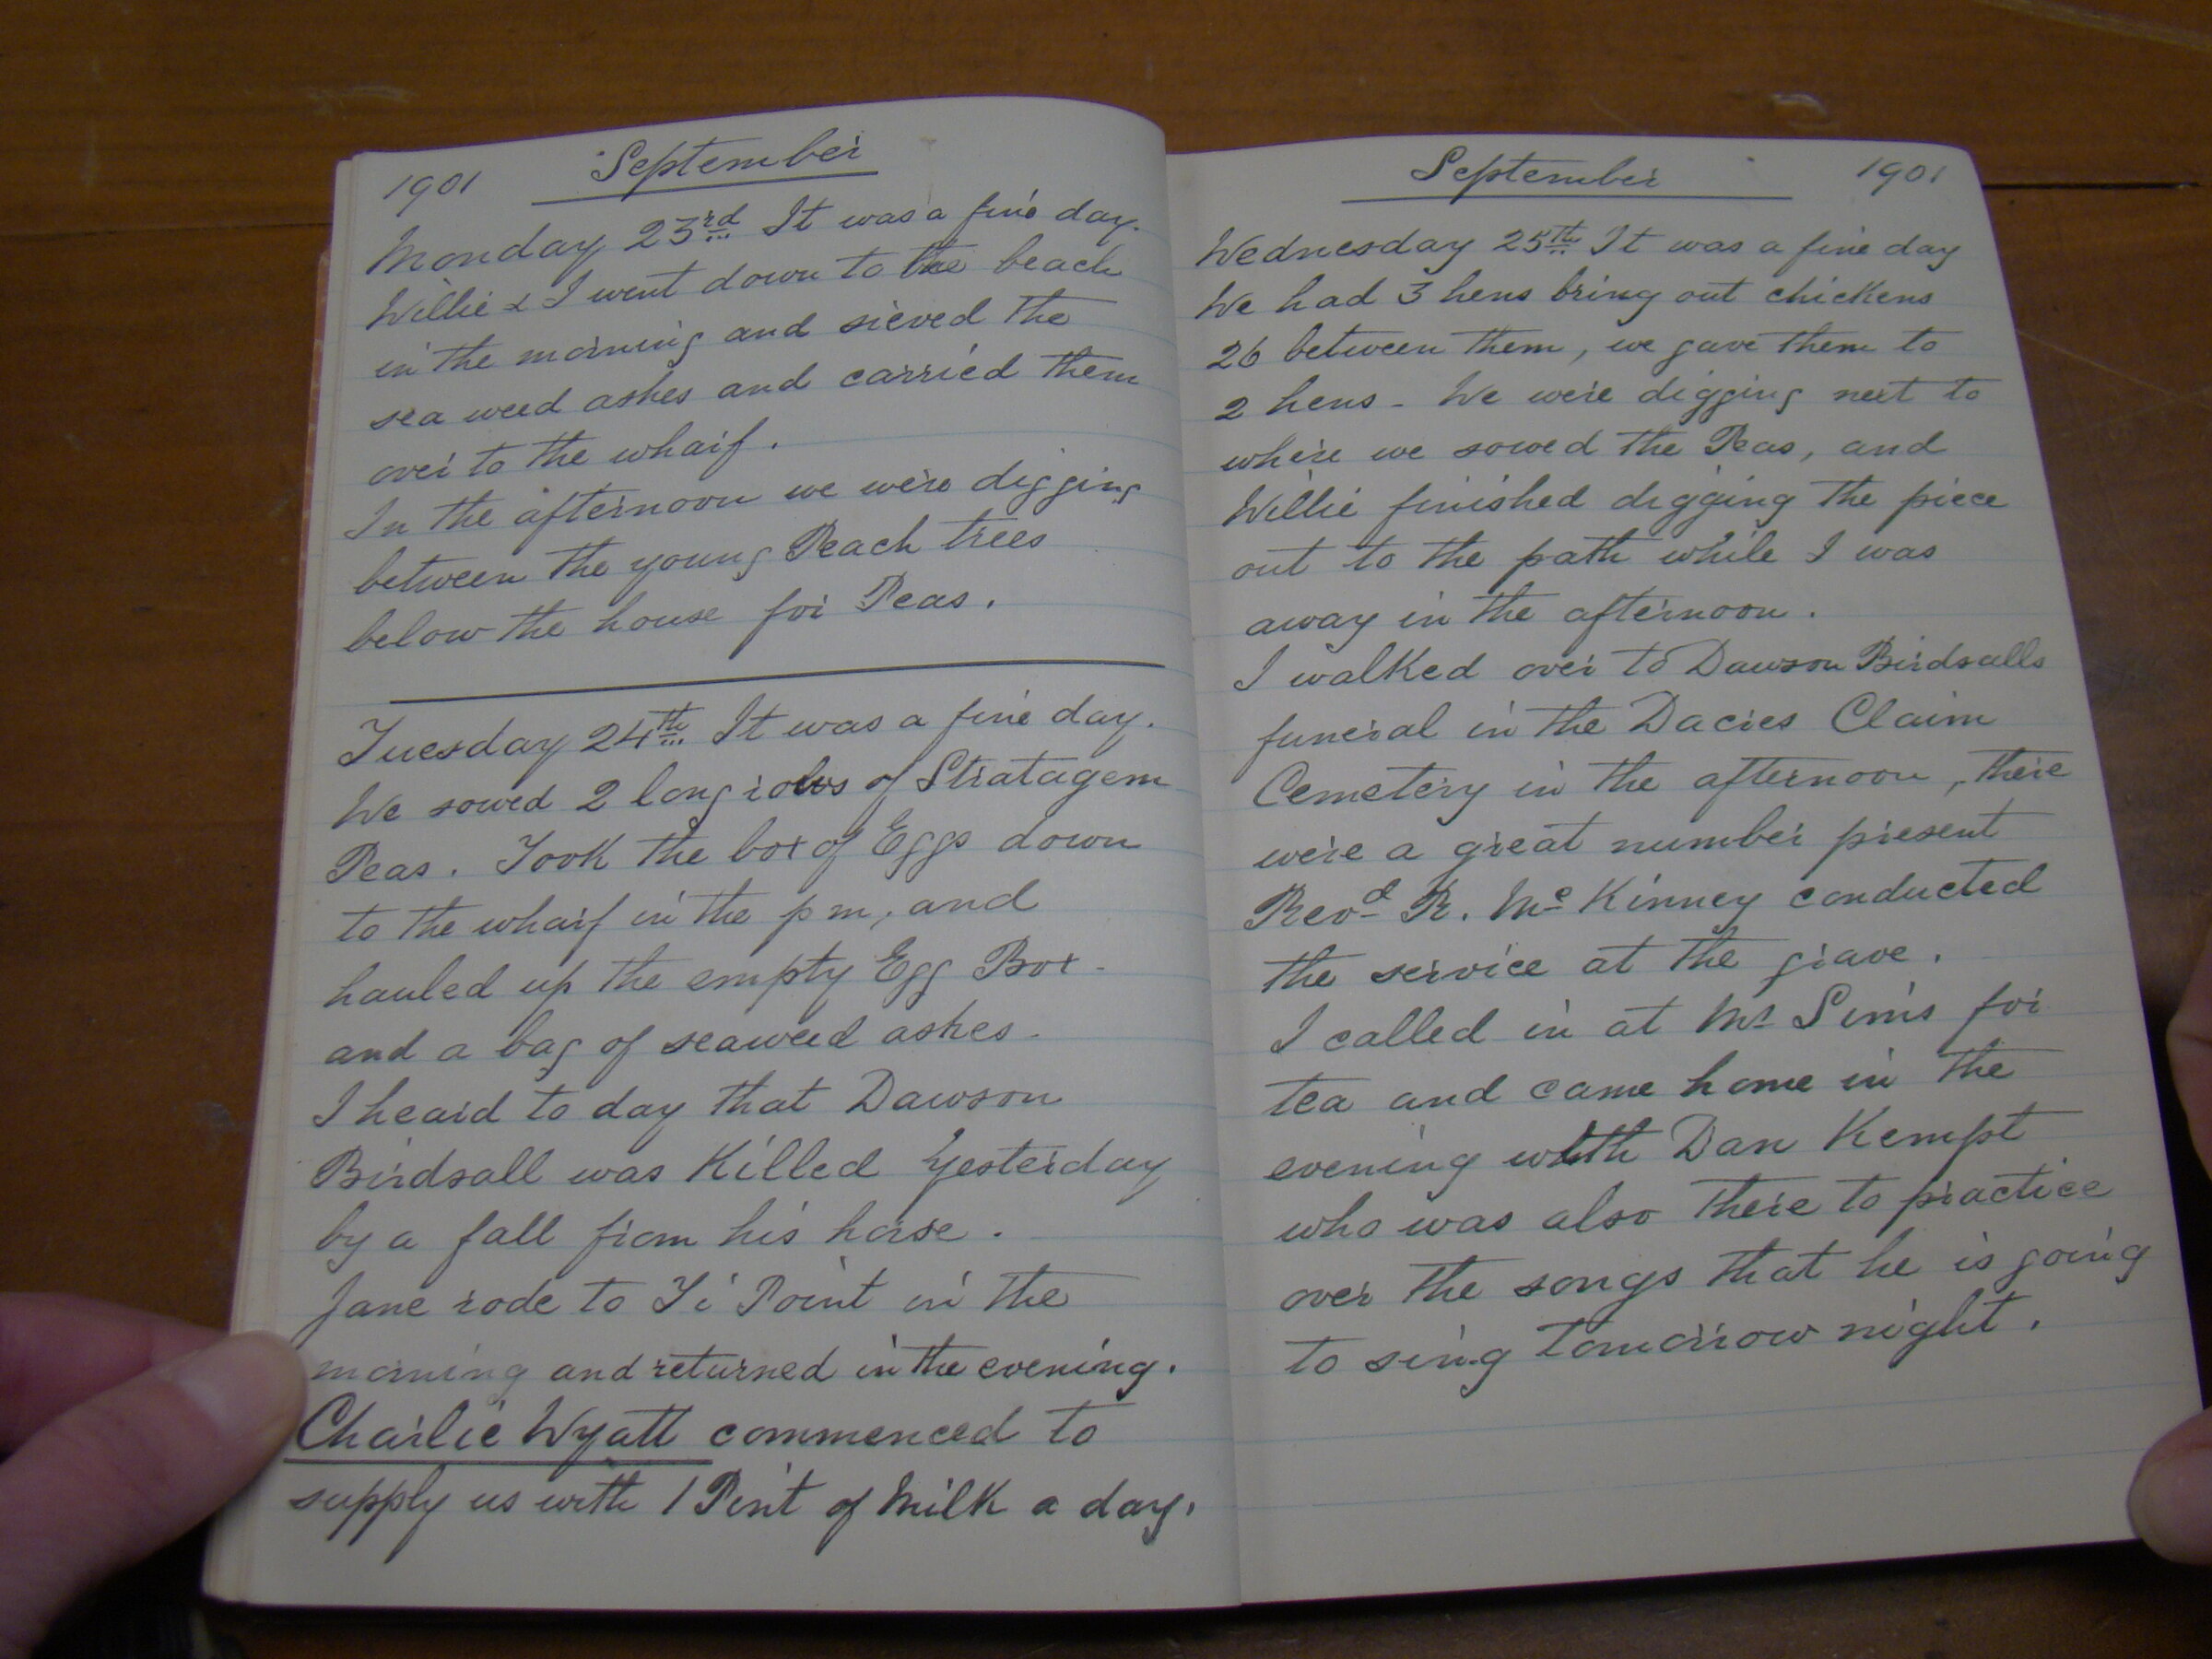 1901 September
Monday 23rd It was a fine day.
Willie & I went down to the beach
in the morning and sieved the
sea weed ashes and carried them
over to the wharf.
In the afternoon we were digging
between the young Peach trees
below the house for Peas.
Tuesday 24th It was a fine day.
We sowed 2 long rows of Stratagem
Peas. Took the box of Eggs down
to the wharf in the pm, and
hauled up the empty Egg Box -
and a bag of seaweed ashes -
I heard to day that Dawson
Birdsall was Killed Yesterday
by a fall from his horse.
Jane rode to Ti Point in the
morning and returned in the evening.
Charlie Wyatt commenced to
supply us with 1 Pint of Milk a day.
September 1901
Wednesday 25th It was a fine day
We had 3 hens bring out chickens
26 between them, we gave them to
2 hens - We were digging next to
where we sowed the Peas, and
Willie finished digging the piece
out to the path while I was
away in the afternoon.
I walked over to Dawson Birdsalls
funeral in the Dacres Claim
Cemetery in the afternoon, there
were a great number present
Revd R. Mc Kinney conducted
the service at the grave.
I called in at Mr Sims for
tea and came home in the
evening with Dan Kempt
who was also there to practice
over the songs that he is going
to sing tomorrow night.